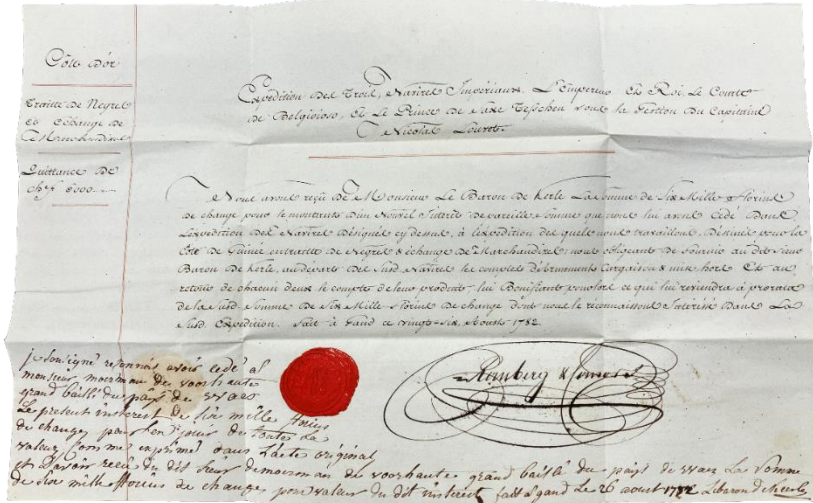 Côte d'or
Traite de Negres
et échange de
Marchandises
Quittance de
6000
Expédition des Trois Navires Impériaux L'Empereur Et Roi, Le Comte
de Belgioioso, Et Le Prince de Saxe Teschen sous la Gestion du Capitaine
Nicolas
Nous avons reçu de Monsieur Le Baron de Kerle La Somme de Six Mille florins
de change pour le montant d'un Nouvel Interêt de pareille Somme que nous lui avons Cédé Dans
l'expedition des Navires Désignés cy dessus, à l'expédition des quels nous travaillons, Destinés pour la
Côte de Guinée en traitte de Negres & échange de Marchandises; nous obligeant de fournir au dit Sieur
Baron de Kerle, au départ des Susd. Navires les comptes Débrusements cargaison & mise hors Et au
retour de chacun deux le compte de leur produit, lui Bonifiant pour lors ce qui lui reviendra à prorata
de la susd. Somme de Six Mille florins de change dont nous le reconnaissons Interessé Dans La
Susd. Expédition. fait à Gand ce vingt-six Août 1782
Romberg &
je soussigné reconnois avoir cédé a
monsieur moerman de voorhaute
grand bailli du pays de waes
Le present interest de six mille florins
de change pour en jouir de toutte La
valeur Comme exprimé dans L'acte original
et d'avoir reçu du dit sieur de moerman de voorhaute grand bailli du pays de waes La somme
de six mille florins de change pour valeur du dit interest fait a gand Le 26 aout 1782 Lebaron de kerle